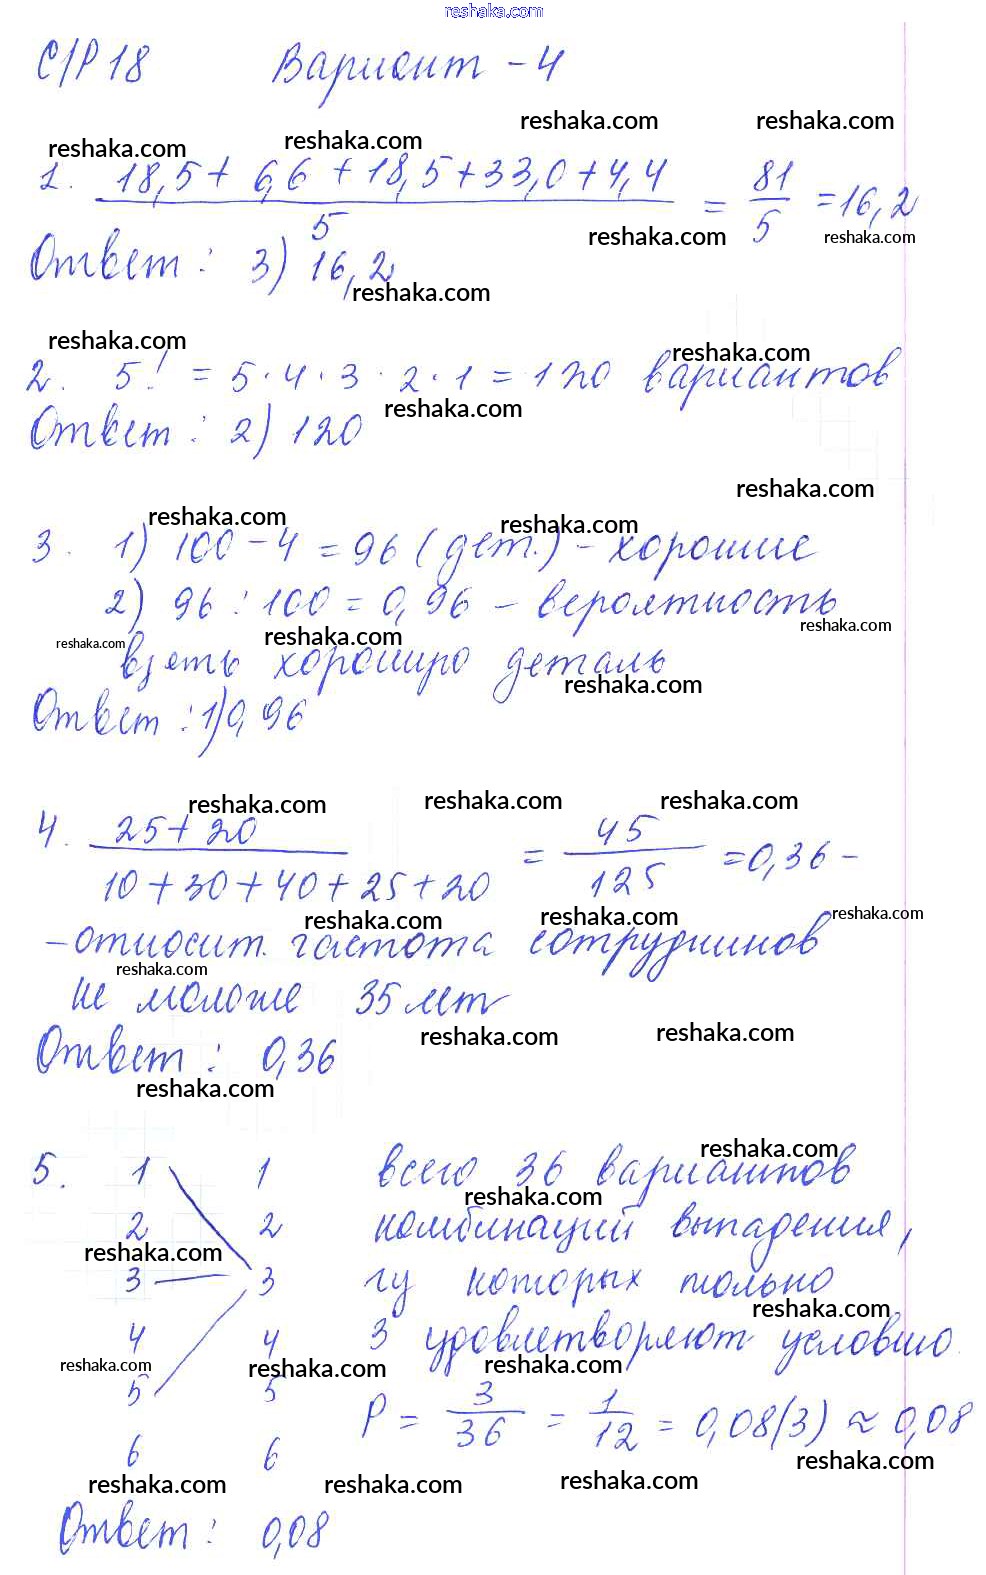 reshaka.com
С/Р 18 Вариант - 4
reshaka.com reshaka.com reshaka.com reshaka.com
1. 18,5 + 6,6 + 18,5 + 33,0 + 4,4 / 5 = 81/5 = 16,2
reshaka.com reshaka.com
Ответ: 3) 16,2
reshaka.com
reshaka.com reshaka.com
2. 5! = 5·4·3·2·1 = 120 вариантов
reshaka.com
Ответ: 2) 120
reshaka.com
reshaka.com reshaka.com
3. 1) 100 - 4 = 96 (дет.) - хорошие
2) 96 : 100 = 0,96 - вероятность
reshaka.com reshaka.com reshaka.com
взять хорошую деталь
reshaka.com
Ответ: 1) 0,96
reshaka.com reshaka.com reshaka.com
4. 25 + 20 / 10 + 30 + 40 + 25 + 20 = 45 / 125 = 0,36 -
reshaka.com reshaka.com reshaka.com
- относит. частота сотрудников
reshaka.com
не моложе 35 лет
reshaka.com reshaka.com
Ответ: 0,36
reshaka.com
reshaka.com
5. 1 1 всего 36 вариантов
reshaka.com
2 2 комбинаций выпадения,
reshaka.com
3 3 из которых только
reshaka.com
4 4 3 удовлетворяют условию
reshaka.com reshaka.com reshaka.com
5 5 P = 3/36 = 1/12 = 0,08(3) ≈ 0,08
6 6
reshaka.com reshaka.com reshaka.com reshaka.com
Ответ: 0,08